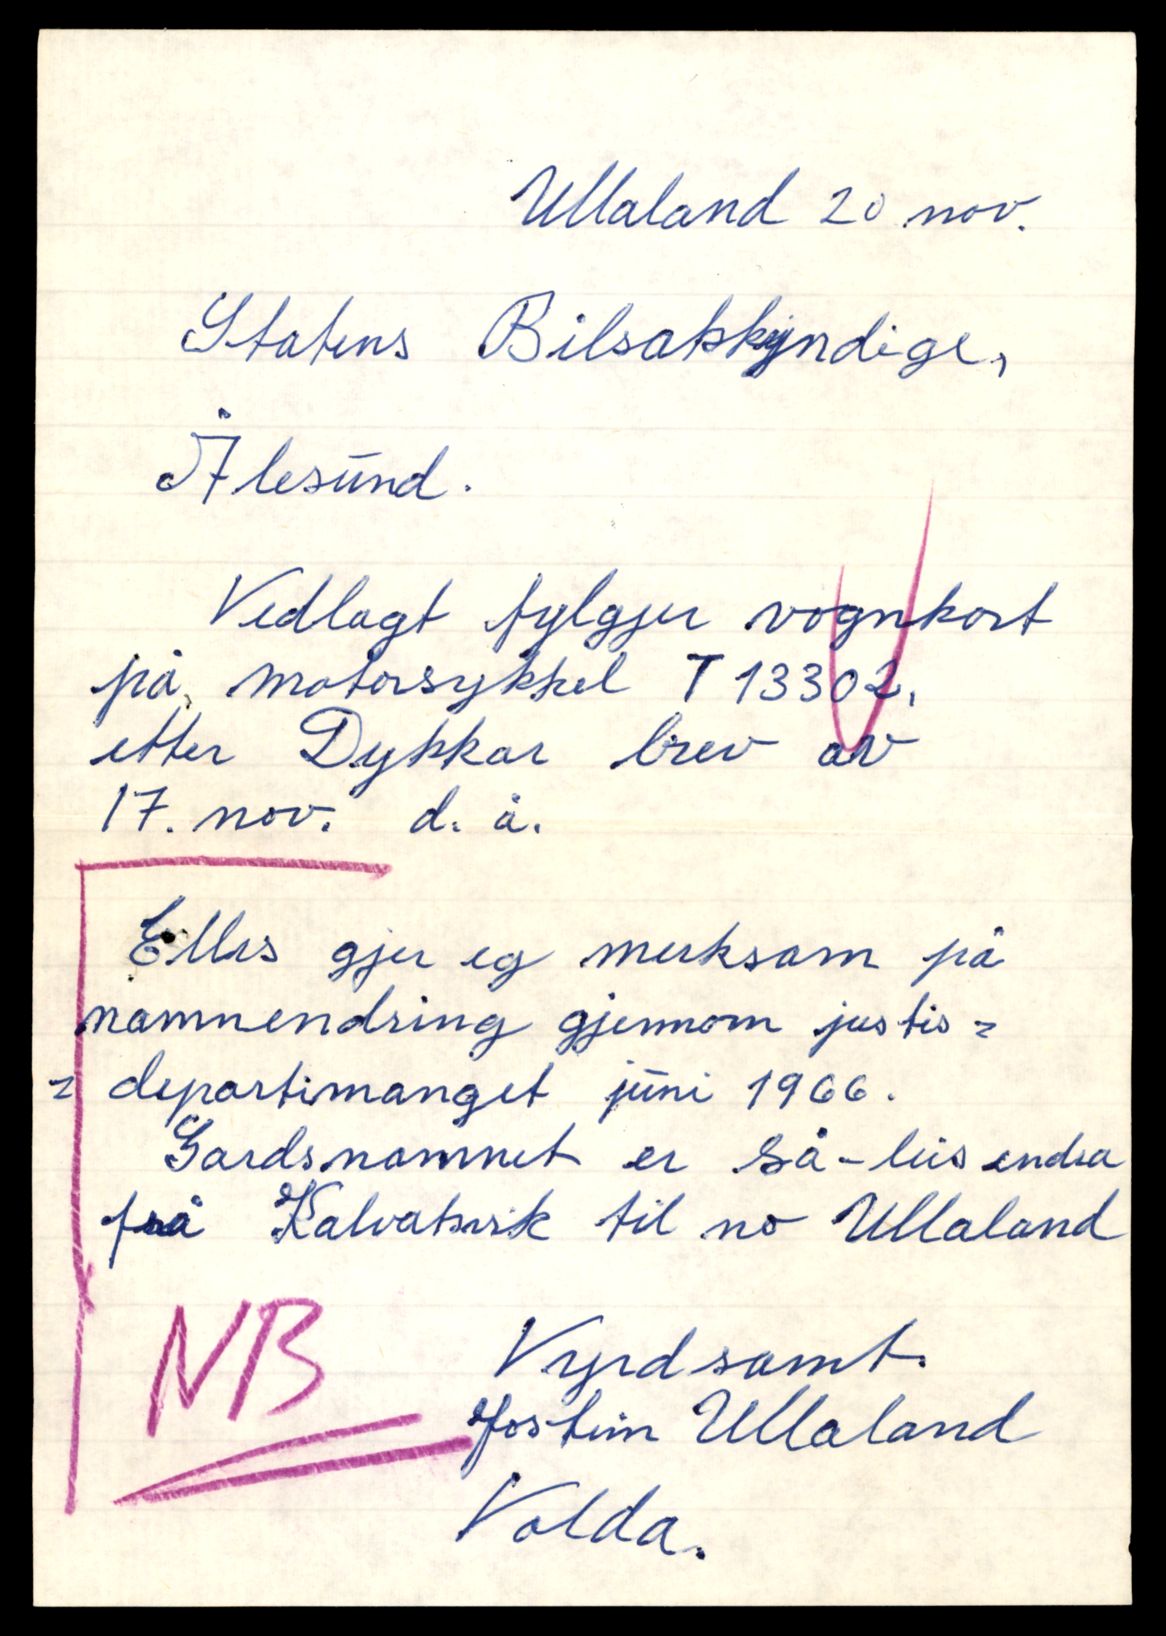 Ullaland 20 nov.
Statens Bilsakkyndige,
Ålesund.
Vedlagt fylgjer vognkort
på motorsykkel T 13302,
etter Dykkar brev av
17. nov. d. å.
Elles gjer eg merksam på
namnendring gjennom justis=
=departimanget juni 1966.
Gardsnamnet er så-leis endra
frå Kalvatsvik til no Ullaland
NB
Vyrdsamt.
Jostein Ullaland
Volda.